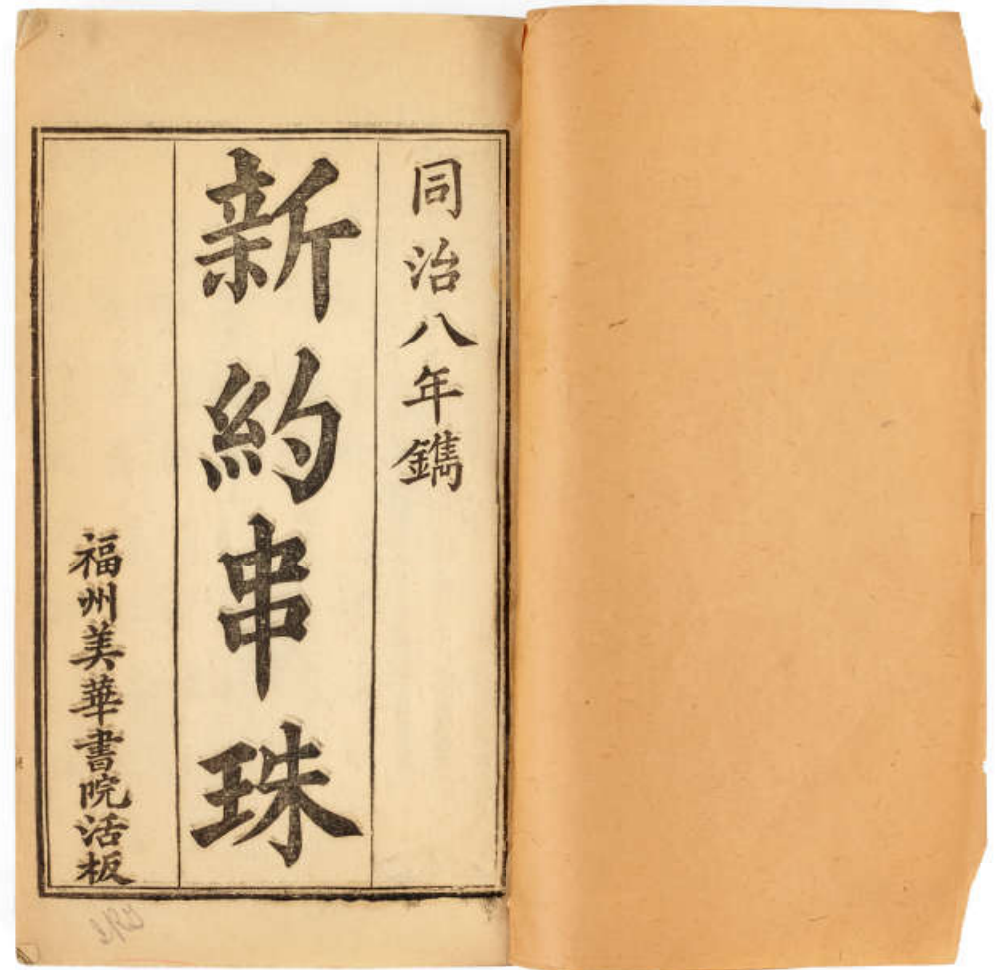 同治八年鐫
新約串珠
福州美華書院活板